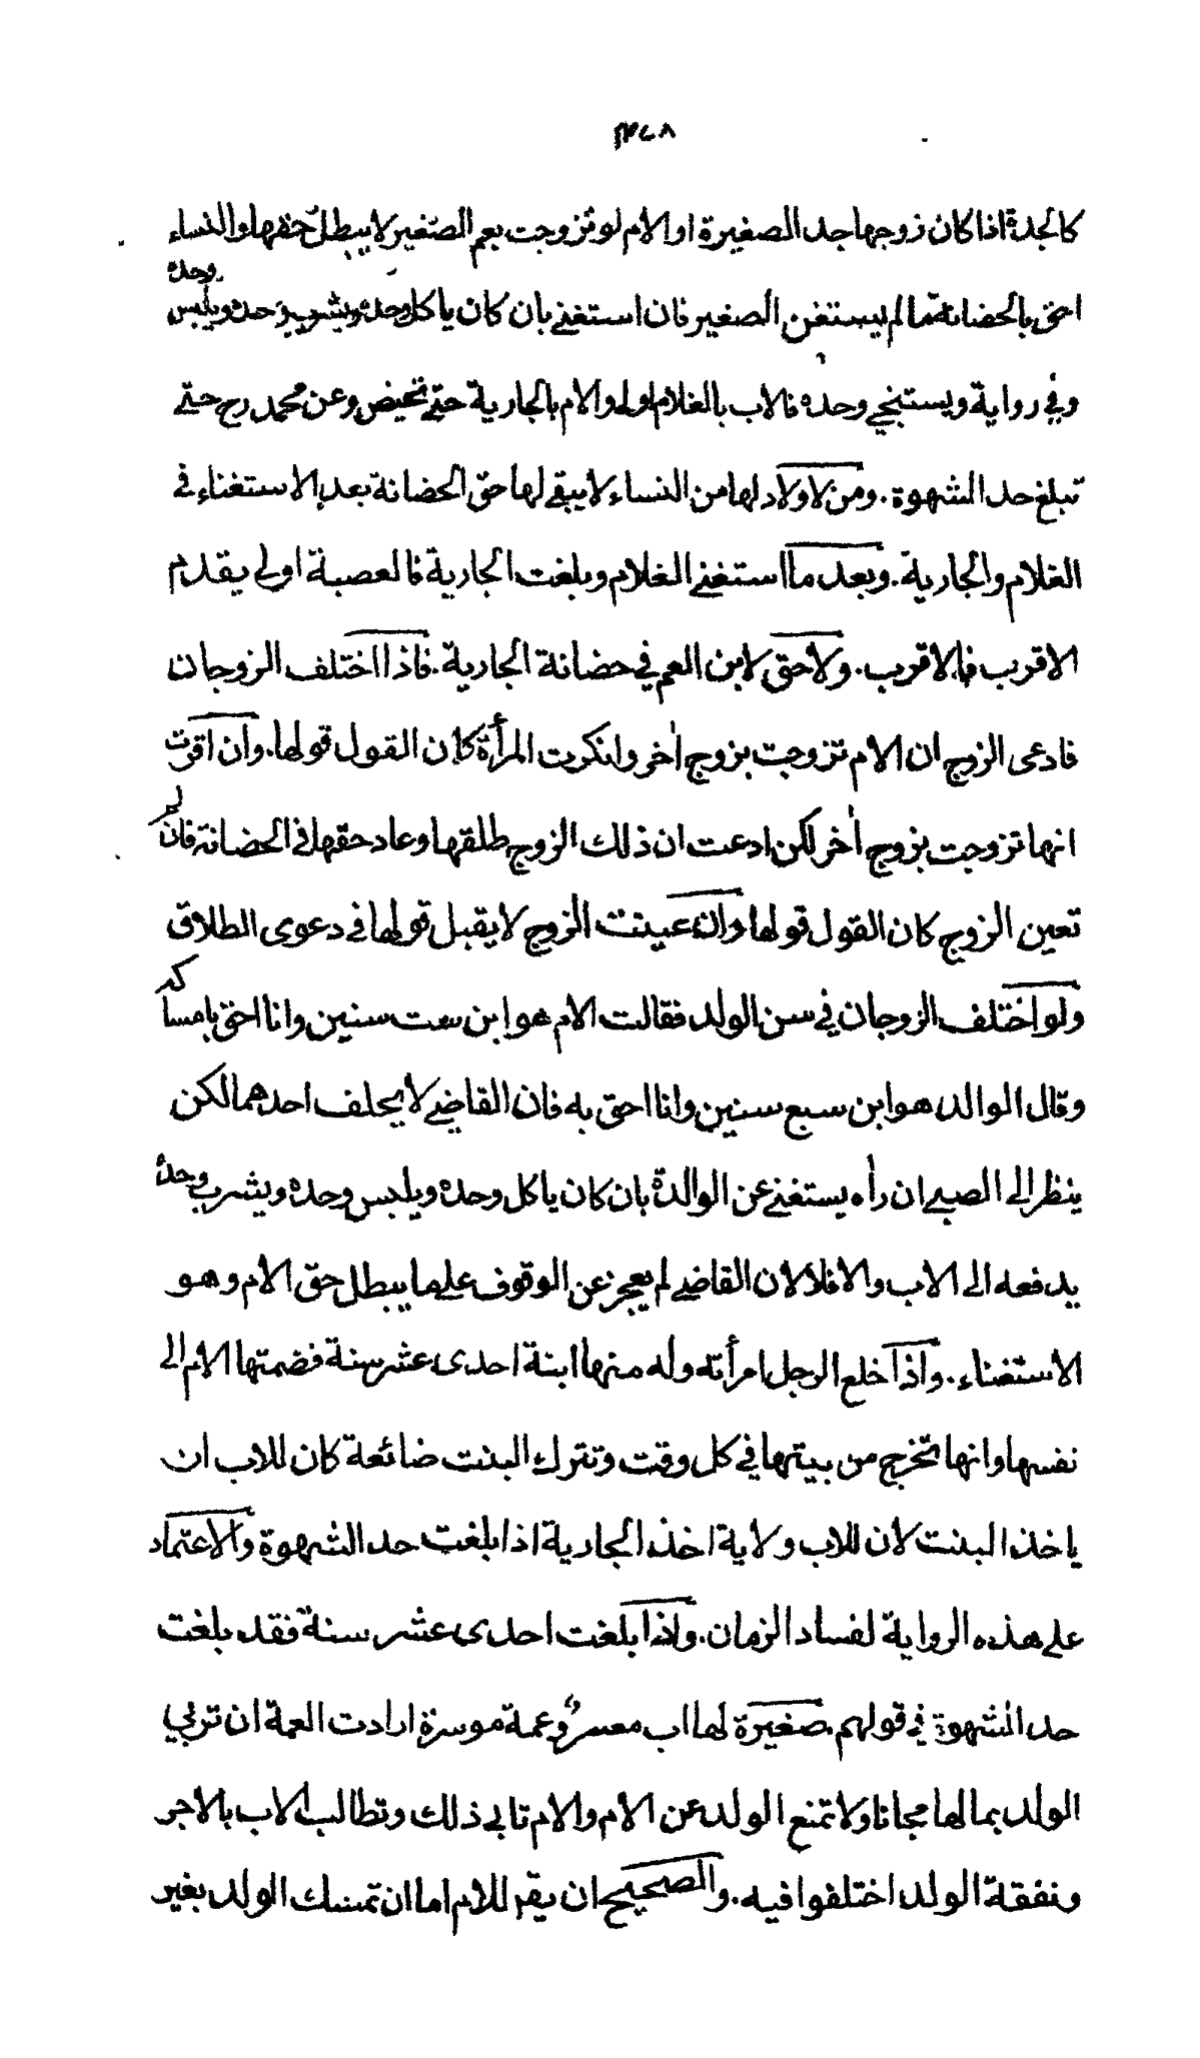 ٣٧٨
كالجدة اذا كان زوجها جد الصغيرة او الام لو تزوجت بعم الصغير لا يبطل حقها والنساء
احق بالحضانة ما لم يستغن الصغير فان استغنى بان كان ياكل وحده ويشرب وحده ويلبس وحده
وفي رواية ويستنجي وحده فالاب بالغلام اولى والام بالجارية حتى تحيض وعن محمد رح حتى
تبلغ حد الشهوة . ومن لا ولاد لها من النساء لا يبقى لها حق الحضانة بعد الاستغناء في
الغلام والجارية . وبعد ما استغنى الغلام وبلغت الجارية فالعصبة اولى يقدم
الاقرب فالاقرب . ولا حق لابن العم في حضانة الجارية . فاذا اختلف الزوجان
فادعى الزوج ان الام تزوجت بزوج اخر وانكرت المرأة كان القول قولها . وان اقرت
انها تزوجت بزوج اخر لكن ادعت ان ذلك الزوج طلقها وعاد حقها في الحضانة فان لم
تعين الزوج كان القول قولها وان عينت الزوج لا يقبل قولها في دعوى الطلاق
ولو اختلف الزوجان في سن الولد فقالت الام هو ابن ست سنين وانا احق بامساكه
وقال الوالد هو ابن سبع سنين وانا احق به فان القاضي لا يحلف احدهما لكن
ينظر الى الصبي ان رأه يستغني عن الوالدة بان كان ياكل وحده ويلبس وحده ويشرب وحده
يدفعه الى الاب والا فلا لان القاضي لم يعجز عن الوقوف على ما يبطل حق الام وهو
الاستغناء . واذا خلع الرجل امرأته وله منها ابنة احدى عشر سنة فضمتها الام الى
نفسها وانها تخرج من بيتها في كل وقت وتترك البنت ضائعة كان للاب ان
ياخذ البنت لان للاب ولاية اخذ الجارية اذا بلغت حد الشهوة والاعتماد
على هذه الرواية لفساد الزمان . واذا بلغت احدى عشر سنة فقد بلغت
حد الشهوة في قولهم . صغيرة لها اب معسر وعمة موسرة ارادت العمة ان تربي
الولد بمالها مجانا ولا تمنع الولد عن الام والام تابى ذلك وتطالب الاب بالاجر
ونفقة الولد اختلفوا فيه . والصحيح ان يقال للام اما ان تمسك الولد بغير